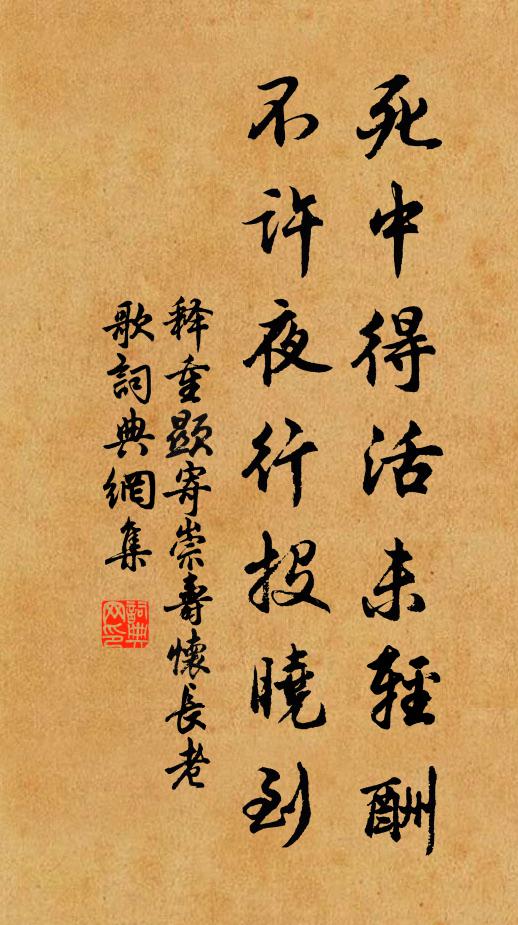 死中得活未輕酬
不許夜行投曉到
释重顯寄崇壽懷長老
歌詞典網集
詞典
网印